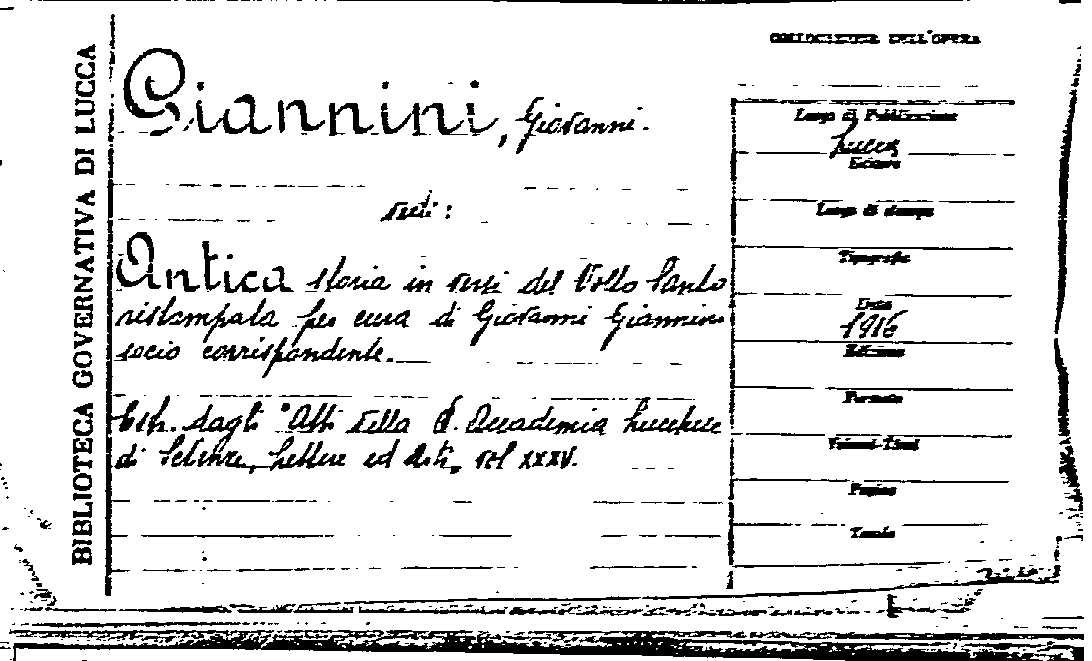 BIBLIOTECA GOVERNATIVA DI LUCCA
COLLOCAZIONE DELL'OPERA
Giannini, Giovanni.
vedi:
Antica storia in versi del Volto Santo
ristampata per cura di Giovanni Giannini
socio corrispondente.
Estr. dagli "Atti della R. Accademia Lucchese
di Scienze, Lettere ed Arti, vol XXXV.
Luogo di Pubblicazione
Lucca
Editore
Luogo di stampa
Tipografia
Data
1916
Edizione
Formato
Volumi-Tomi
Pagine
Tavole